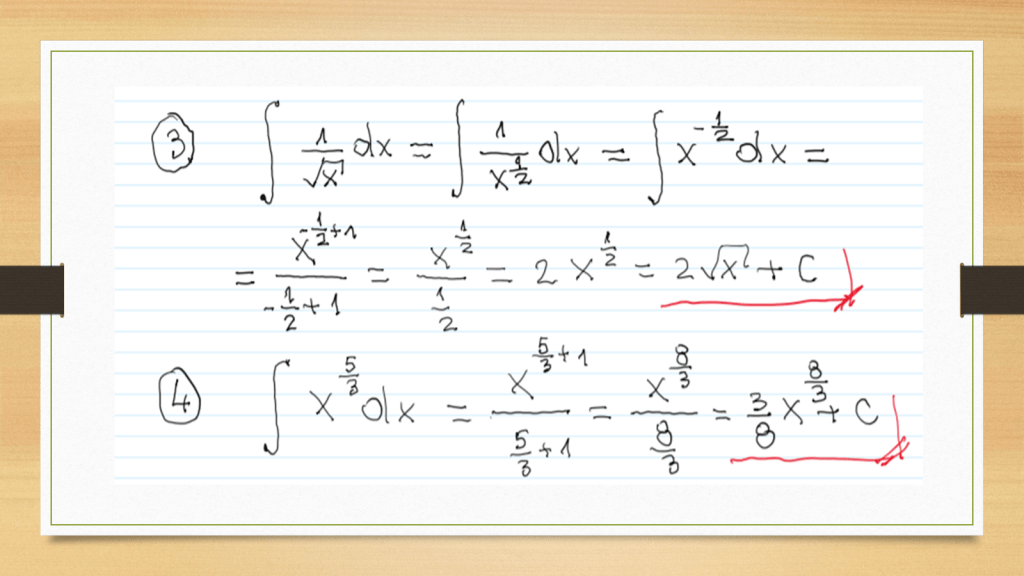 ③ ∫ 1/√x dx = ∫ 1/x^(1/2) dx = ∫ x^(-1/2) dx =
= x^(-1/2+1)/(-1/2+1) = x^(1/2)/(1/2) = 2 x^(1/2) = 2√x + C
④ ∫ x^(5/3) dx = x^(5/3+1)/(5/3+1) = x^(8/3)/(8/3) = 3/8 x^(8/3) + C